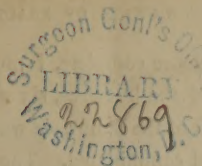 Surgeon Genl's
LIBRARY
22869
Washington, D.C.